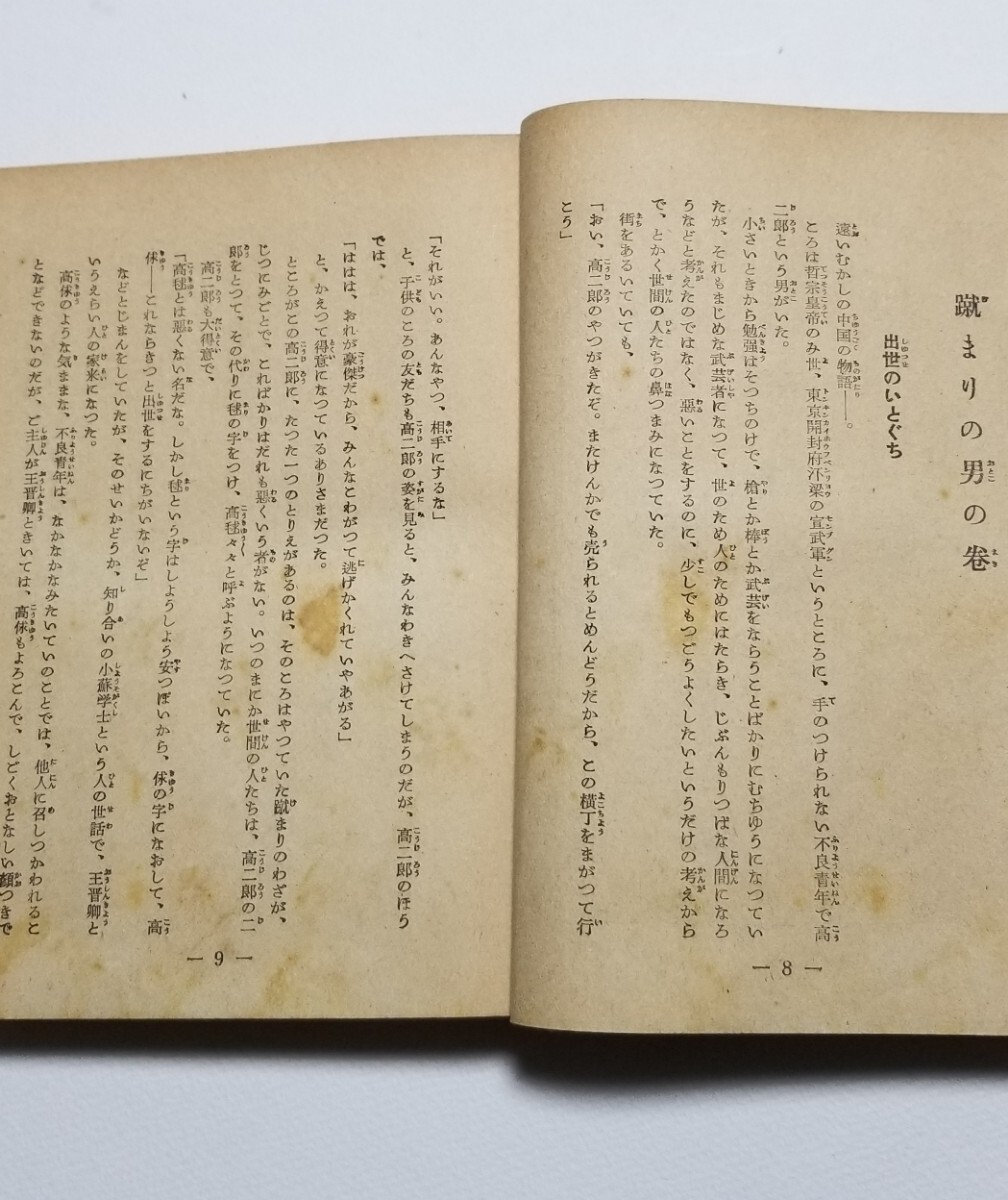 蹴まりの男の巻
出世のいとぐち
遠いむかしの中国の物語――。
ころは哲宗皇帝のみ世、東京開封府汴梁の宣武軍というところに、手のつけられない不良青年で高
二郎という男がいた。
小さいときから勉强はそつちのけで、槍とか棒とか武芸をならうことばかりにむちゆうになつてい
たが、それもまじめな武芸者になつて、世のため人のためにはたらき、じぶんもりつぱな人間になろ
うなどと考えたのではなく、惡いことをするのに、少しでもつごうよくしたいというだけの考えから
で、とかく世間の人たちの鼻つまみになつていた。
街をあるいていても、
「おい、高二郎のやつがきたぞ。またけんかでも売られるとめんどうだから、この横丁をまがつて行
とう」
— 8 —
「それがいい。あんなやつ、相手にするな」
と、子供のころの友だちも高二郎の姿を見ると、みんなわきへさけてしまうのだが、高二郎のほう
では、
「ははは、おれが豪傑だから、みんなこわがつて逃げかくれていやあがる」
と、かえつて得意になつているありさまだつた。
ところがこの高二郎に、たつた一つのとりえがあるのは、そのころはやつていた蹴まりのわざが、
じつにみごとで、こればかりはだれも惡くいう者がない。いつのまにか世間の人たちは、高二郎の二
郎をとつて、その代りに毬の字をつけ、高毬々々と呼ぶようになつていた。
高二郎も大得意で、
「高毬とは惡くない名だな。しかし毬という字はしようしよう安つぽいから、俅の字になおして、高
俅――これならきつと出世をするにちがいないぞ」
などとじまんをしていたが、そのせいかどうか、知り合いの小蘇学士という人の世話で、王晋卿と
いうえらい人の家来になつた。
高俅のような気ままな、不良青年は、なかなかなみたいていのことでは、他人に召しつかわれるこ
となどできないのだが、ご主人が王晋卿ときいては、高俅もよろとんで、しごくおとなしい顔つきで
— 9 —